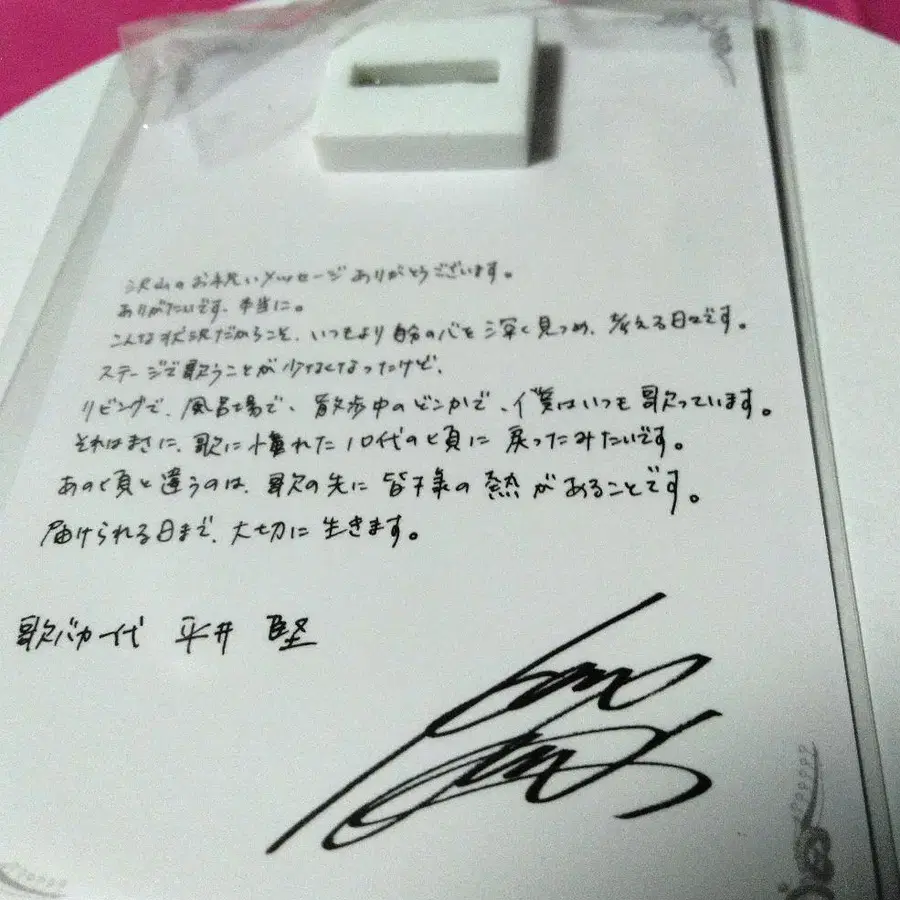 沢山のお祝いメッセージありがとうございます。
ありがたいです、本当に。
こんな状況だからこそ、いつもより自分の心を深く見つめ、考える日々です。
ステージで歌うことが少なくなったけど、
リビングで、風呂場で、散歩中のどこかで、僕はいつも歌っています。
それはまさに、歌に憧れた10代の頃に戻ったみたいです。
あの頃と違うのは、歌の先に皆様の熱があることです。
届けられる日まで、大切に生きます。
歌バカ一代 平井 堅